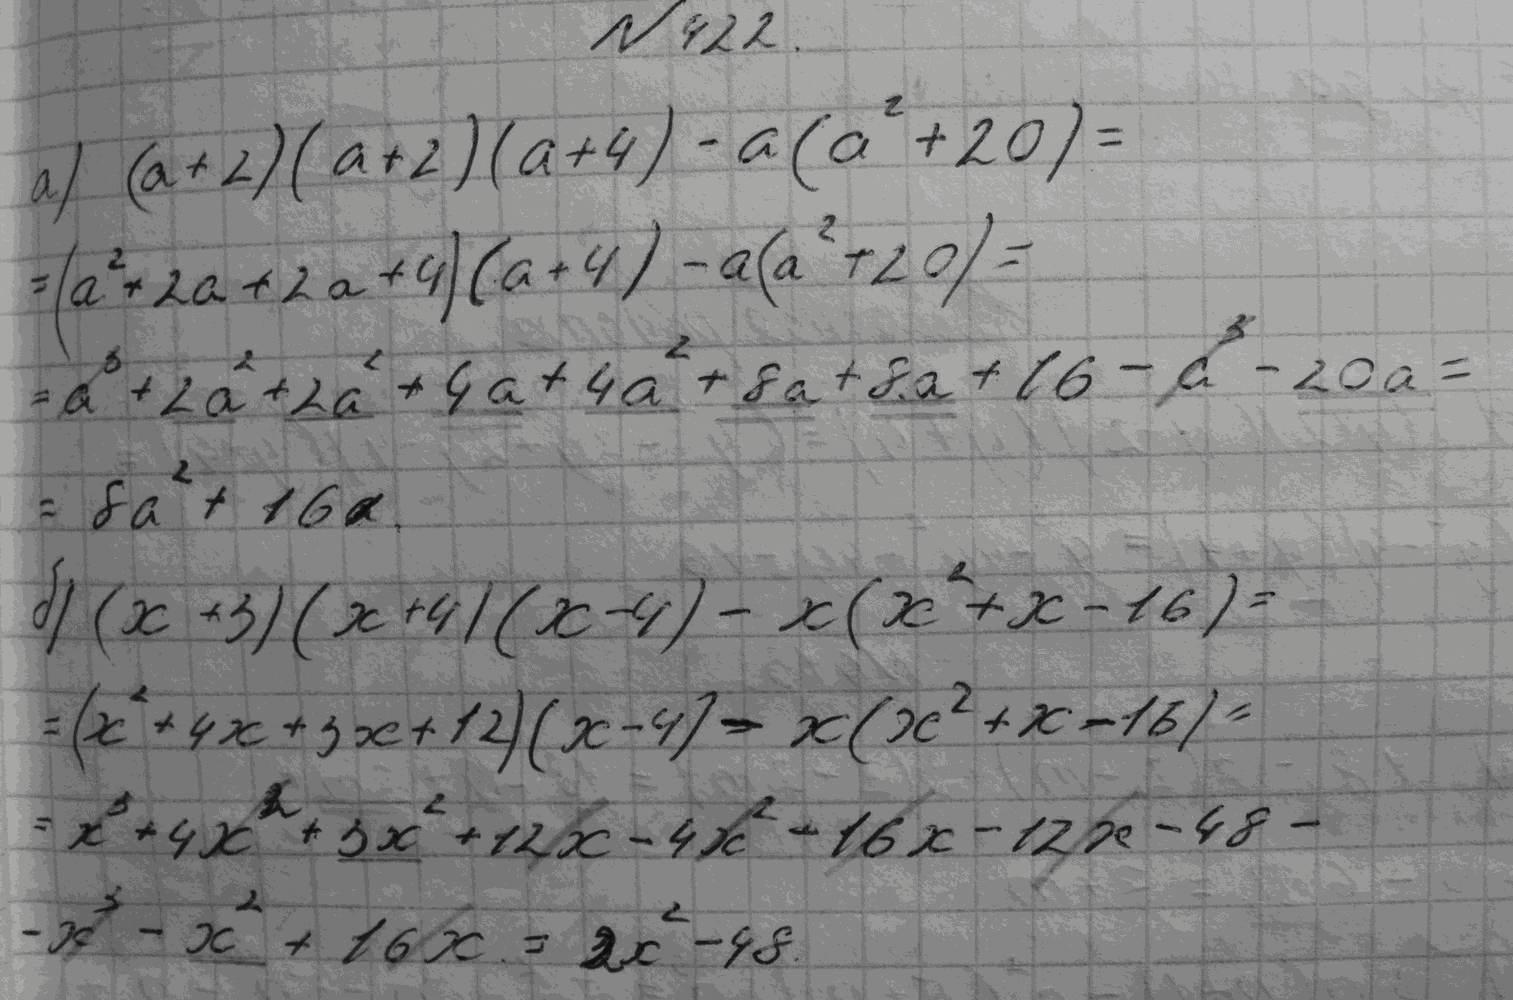 N 422.
а) (a+2)(a+2)(a+4) - a(a² + 20) =
= (a² + 2a + 2a + 4)(a + 4) - a(a² + 20) =
= a³ + 2a² + 2a² + 4a + 4a² + 8a + 8a + 16 - a³ - 20a =
= 8a² + 16a.
б) (x + 3)(x + 4)(x - 4) - x(x² + x - 16) =
= (x² + 4x + 3x + 12)(x - 4) - x(x² + x - 16) =
= x³ + 4x² + 3x² + 12x - 4x² - 16x - 12x - 48 -
- x³ - x² + 16x = 2x² - 48.